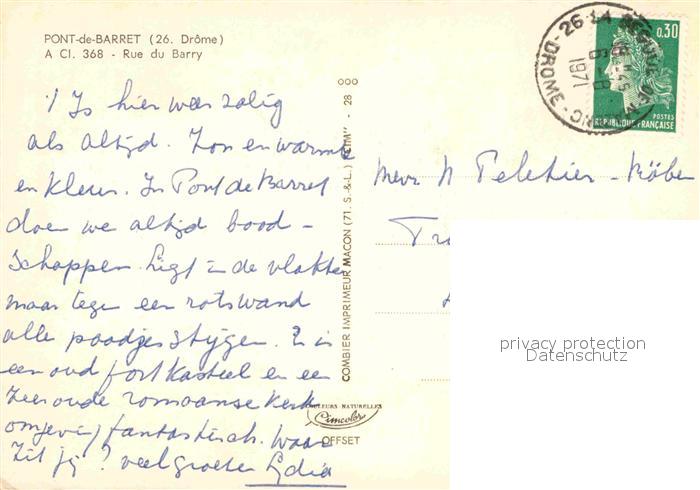 PONT-de-BARRET (26. Drôme)
A Cl. 368 - Rue du Barry
't Is hier weer zalig
als altijd. Zon en warmte
en kleur. In Pont de Barret
doen we altijd bood-
schappen. Ligt in de vlakte
maar tegen een rotswand
alle paadjes stijgen. Er is
een oud fort kasteel en een
zeer oude romaanse kerk
omgeving fantastisch. Waar
zit jij? veel groeten Lydia
COMBIER IMPRIMEUR MACON (71. S.-&-L.) "CIM" - 28
COULEURS NATURELLES
Cimcolor
OFFSET
0,30
POSTES
REPUBLIQUE FRANÇAISE
26
DROME
6 - 8
1971
Mevr N Peletier - Köben
privacy protection
Datenschutz